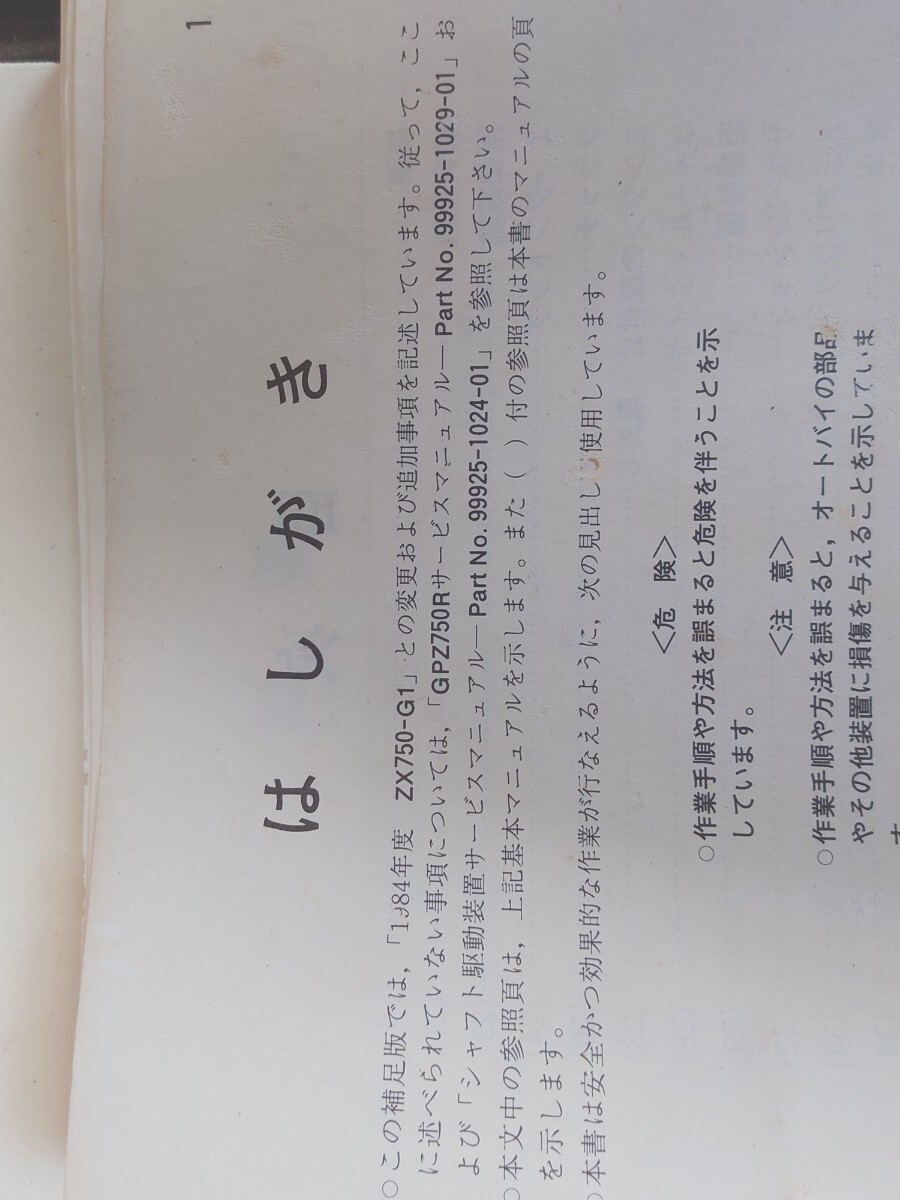 1
はしがき
○この補足版では，「1984年度 ZX750-G1」との変更および追加事項を記述しています。従って，ここ
に述べられていない事項については，「GPZ750Rサービスマニュアル―Part No. 99925-1029-01」お
よび「シャフト駆動装置サービスマニュアル―Part No. 99925-1024-01」を参照して下さい。
○本文中の参照頁は，上記基本マニュアルを示します。また（ ）付の参照頁は本書のマニュアルの頁
を示します。
○本書は安全かつ効果的な作業が行なえるように，次の見出し 使用しています。
＜危 険＞
○作業手順や方法を誤まると危険を伴うことを示
しています。
＜注 意＞
○作業手順や方法を誤まると，オートバイの部品
やその他装置に損傷を与えることを示していま
す